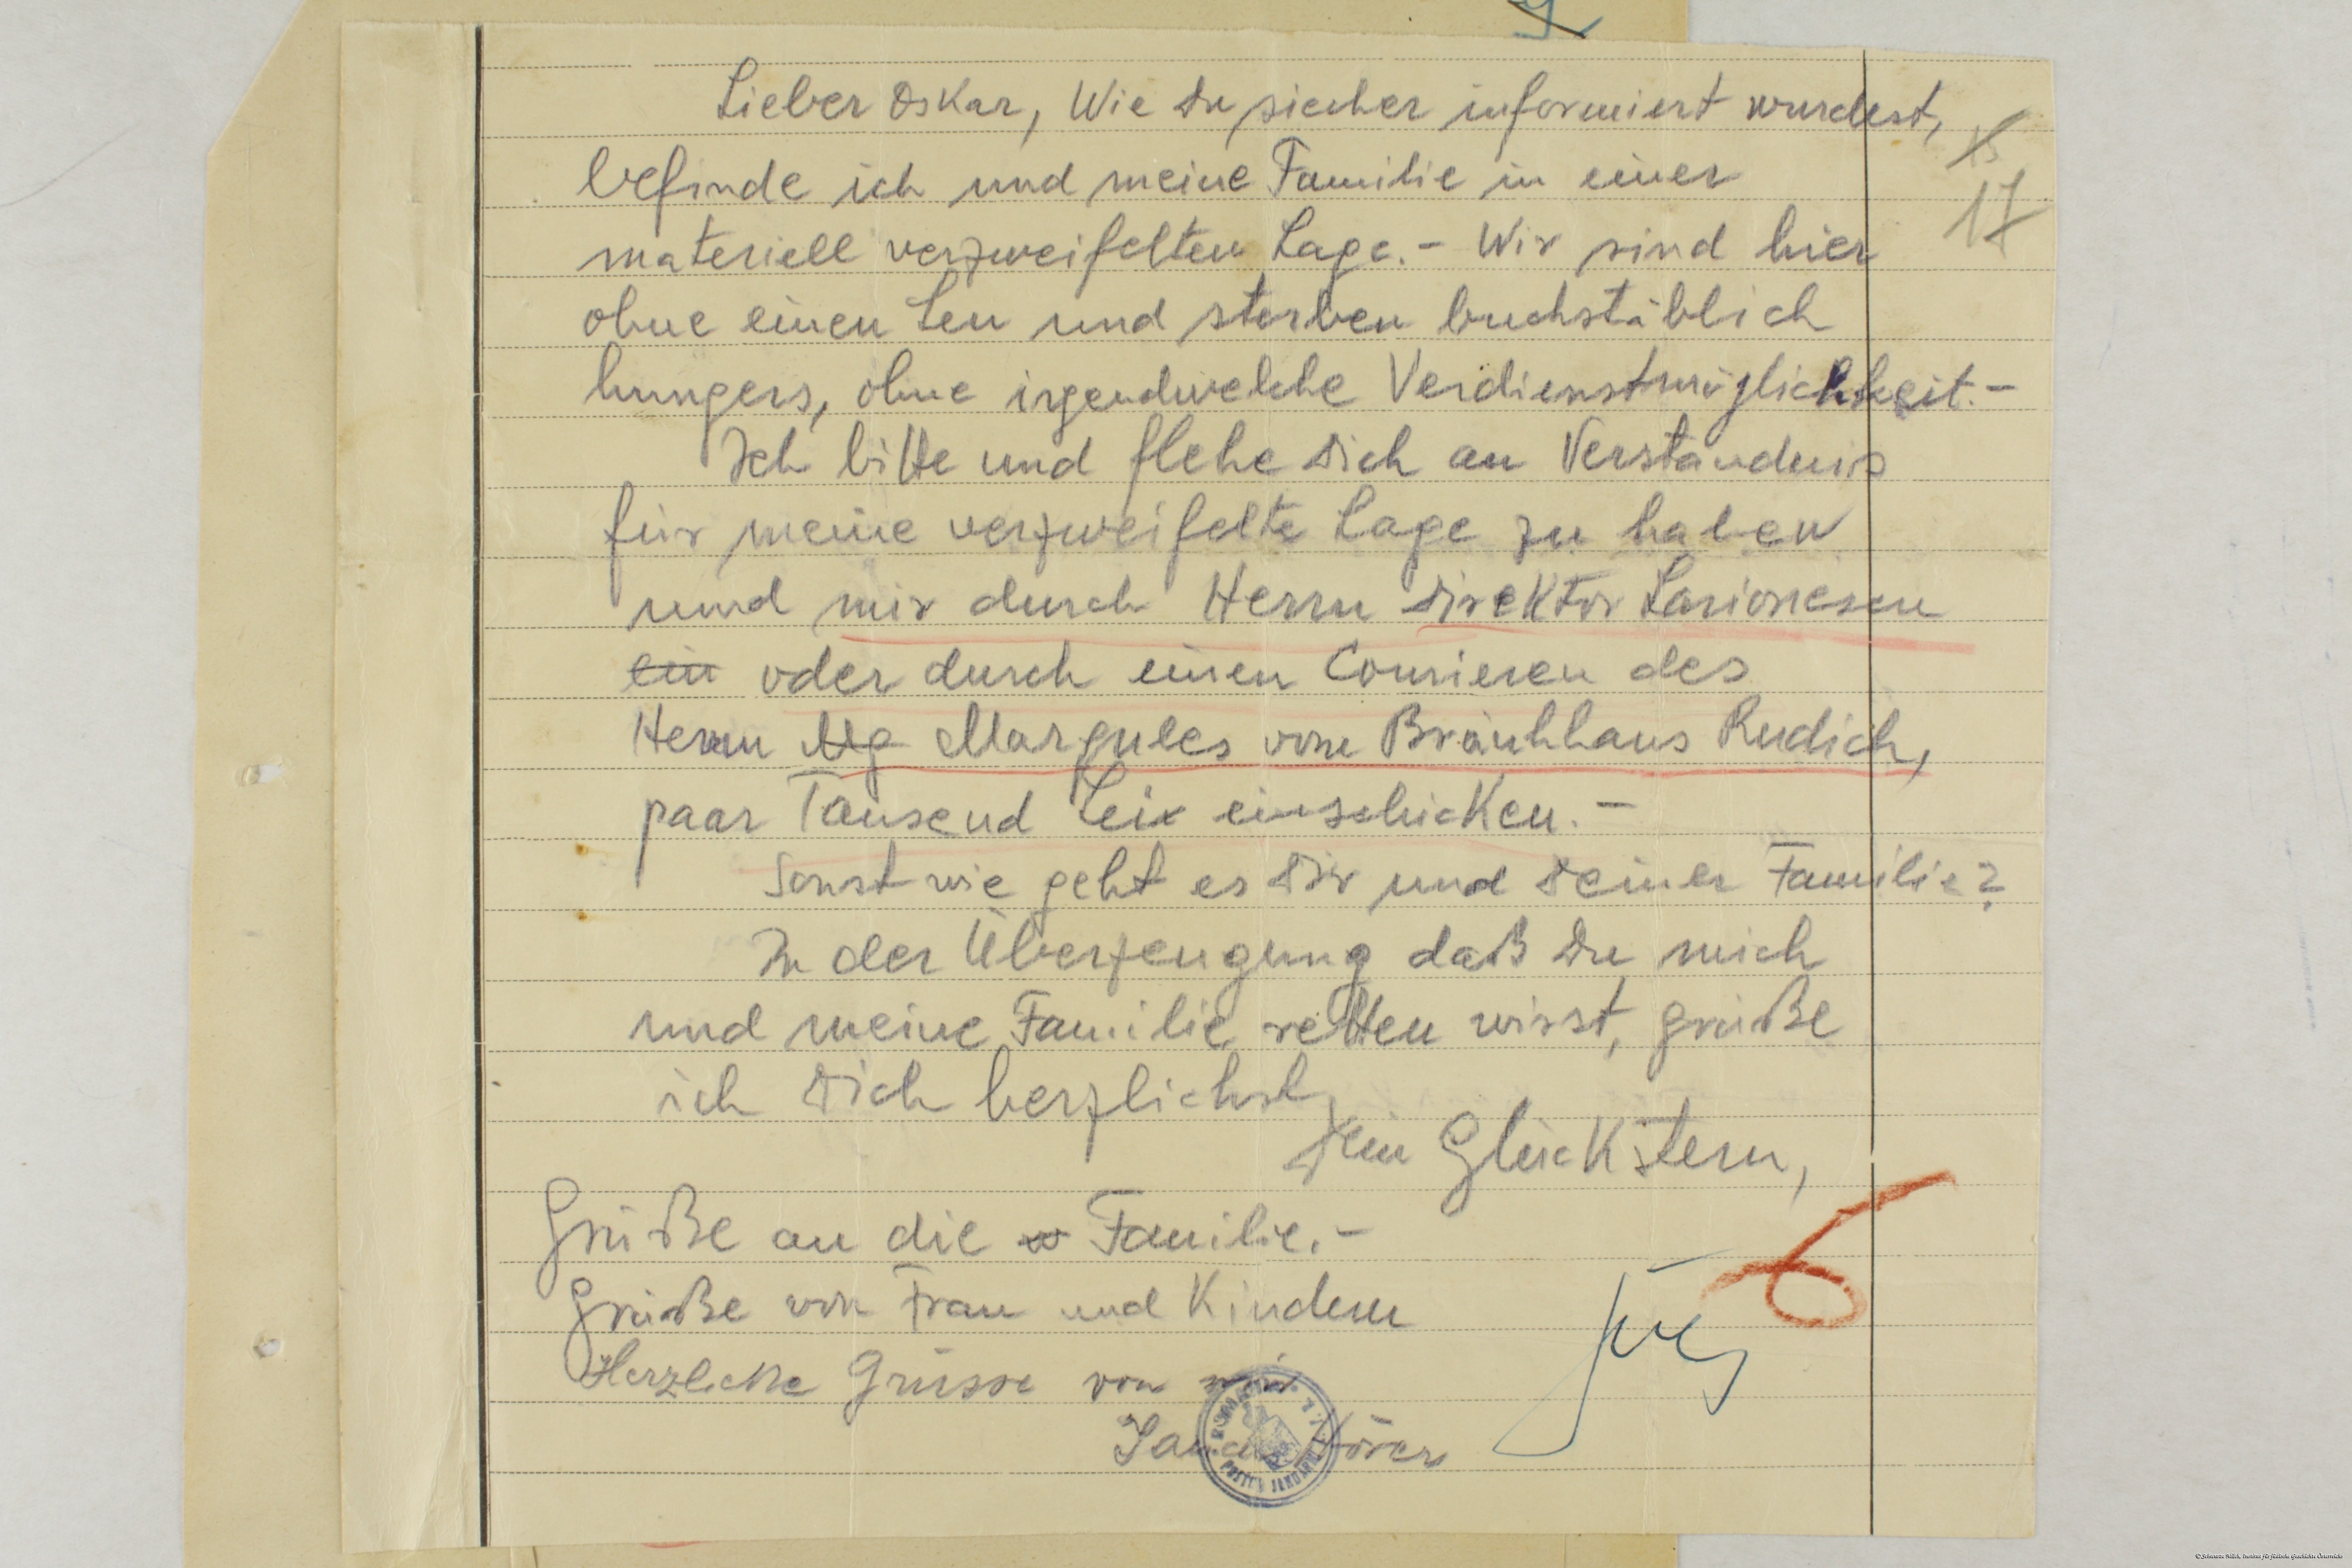 Lieber Oskar, Wie Du sicher informiert wurdest,
befinde ich und meine Familie in einer
materiell verzweifelten Lage.- Wir sind hier
ohne einen Leu und sterben buchstäblich
hungers, ohne irgendwelche Verdienstmöglichkeit.-
Ich bitte und flehe Dich an Verständnis
für meine verzweifelte Lage zu haben
und mir durch Herrn Direktor Larionescu
ein oder durch einen Courieren des
Herrn Mg Margules vom Bräuhhaus Rudich,
paar Tausend Lei einschicken.-
Sonst wie geht es Dir und Deiner Familie?
In der Überzeugung daß Du mich
und meine Familie retten wirst, grüße
ich Dich herzlichst
Dein Glückstern,
Grüße an die Familie.-
Grüße von Frau und Kindern
Herzliche Grüsse von mir
17
6